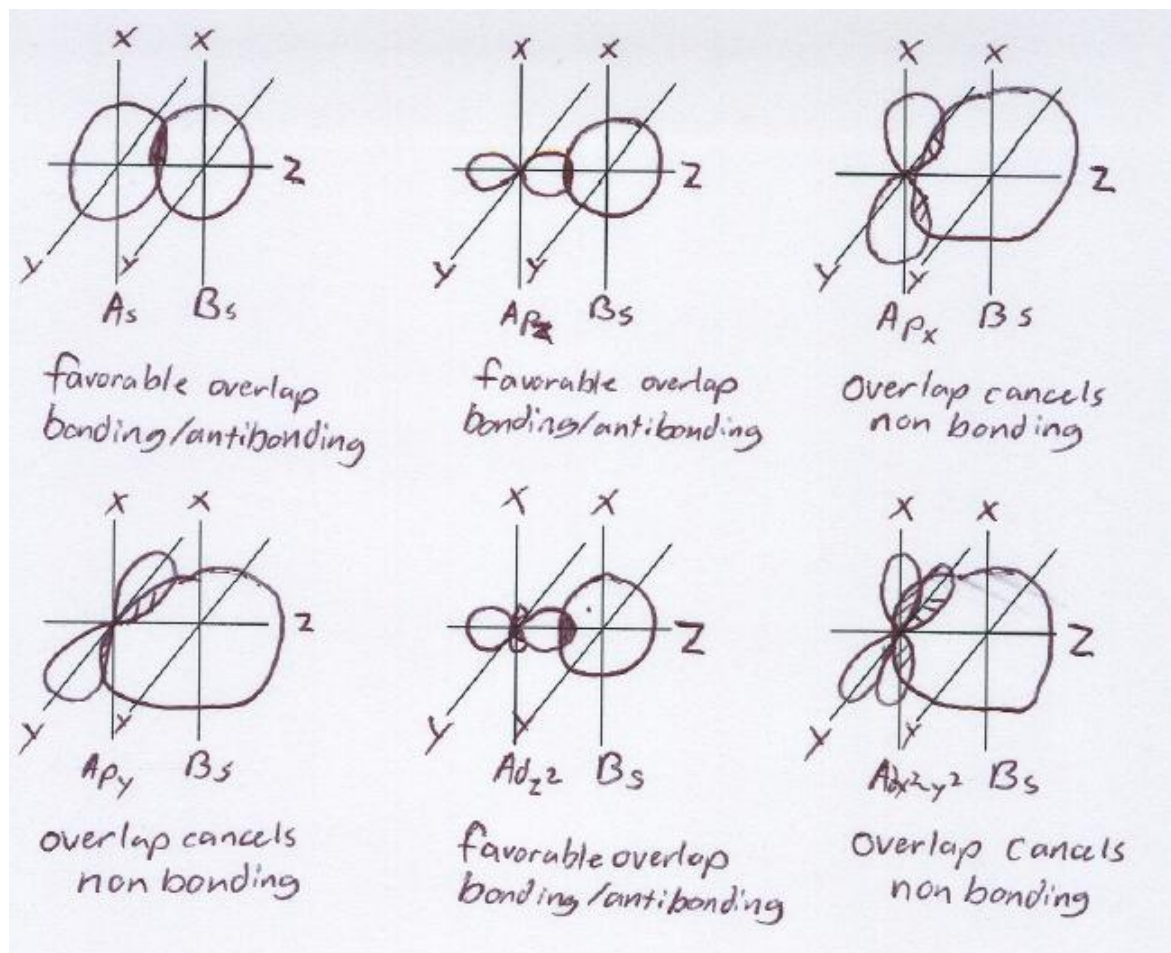 X X
Z
Y Y
As Bs
favorable overlap
bonding/antibonding
X X
Z
Y Y
Apz Bs
favorable overlap
bonding/antibonding
X X
Z
Y Y
Apx Bs
Overlap cancels
non bonding
X X
Z
Y Y
Apy Bs
overlap cancels
non bonding
X X
Z
Y Y
Adz2 Bs
favorable overlap
bonding/antibonding
X X
Z
Y Y
Adx2y2 Bs
Overlap cancels
non bonding